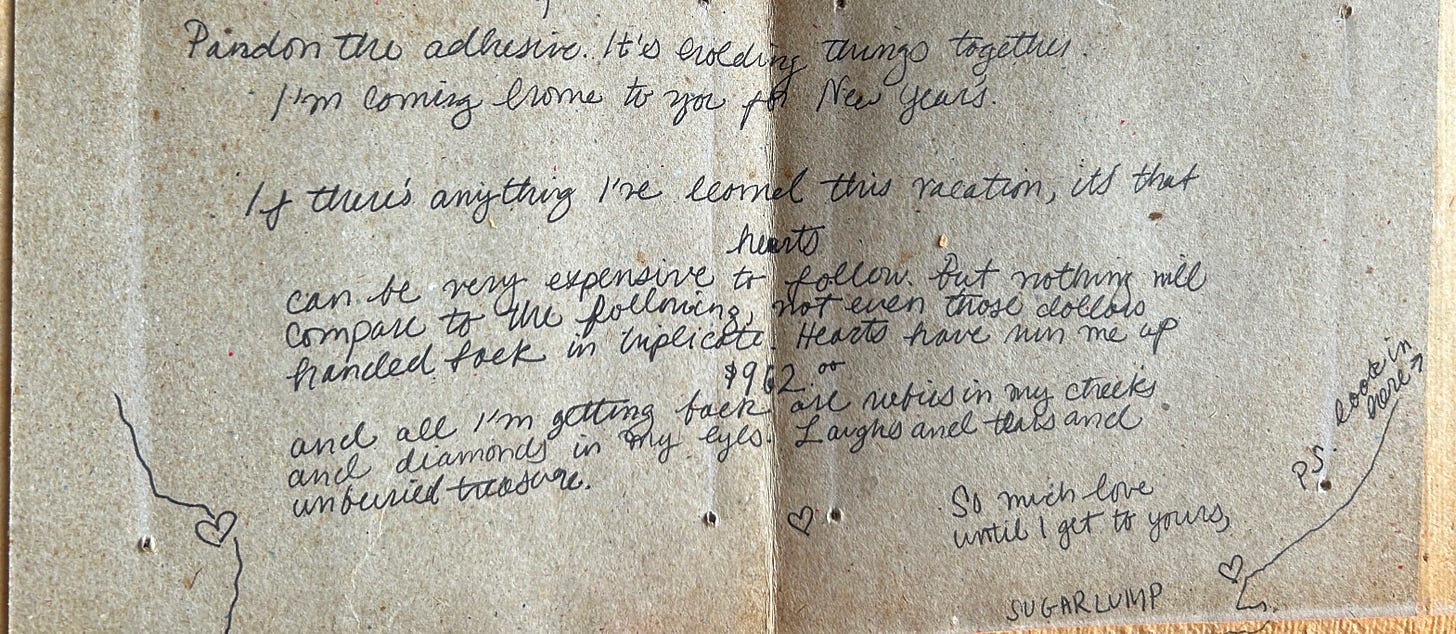 Pardon the adhesive. It's holding things together.
I'm coming home to you for New Years.
If there's anything I've learned this vacation, it's that
hearts
can be very expensive to follow. But nothing will
compare to the following, not even those dollars
handed back in triplicate. Hearts have run me up
$962.00
and all I'm getting back are rubies in my cheeks
and diamonds in my eyes. Laughs and tears and
unburied treasure.
So much love
until I get to yours,
SUGARLUMP
P.S. look in
here